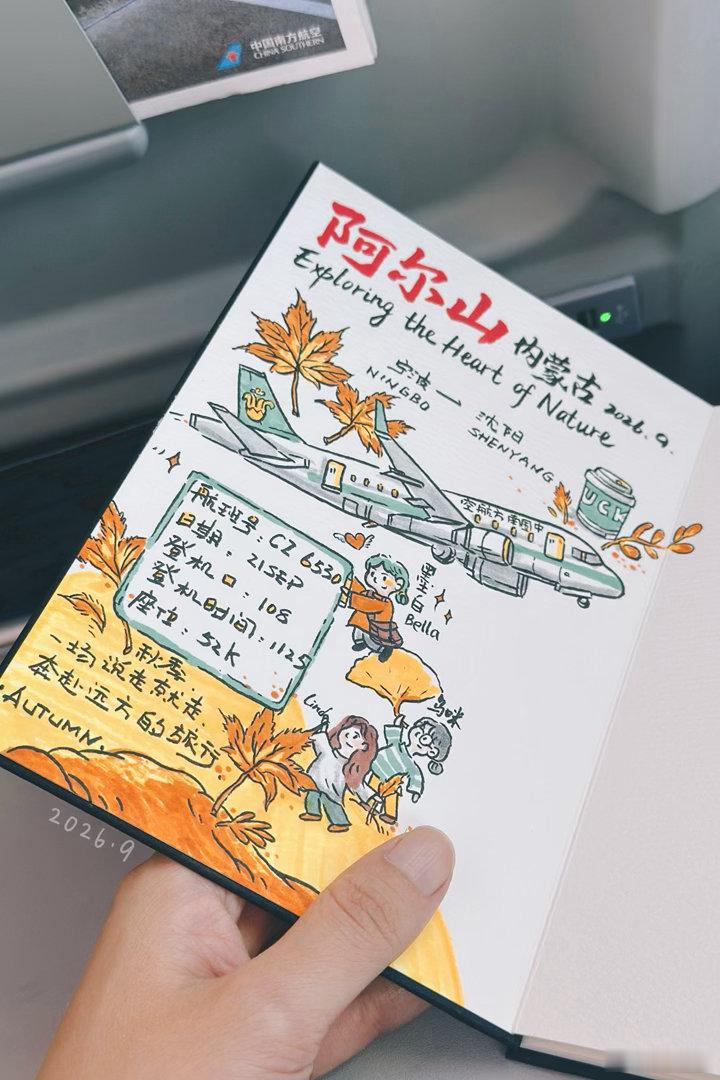 中国南方航空
CHINA SOUTHERN
阿尔山
内蒙古 2026.9.
Exploring the Heart of Nature
宁波 — 沈阳
NINGBO SHENYANG
空航方南国中
UCK
航班号: CZ 6530
日期: 21SEP
登机口: 108
登机时间: 1125
座位: 52K
Bella
秋季
一场说走就走
奔赴远方的旅行
·AUTUMN.
2026.9